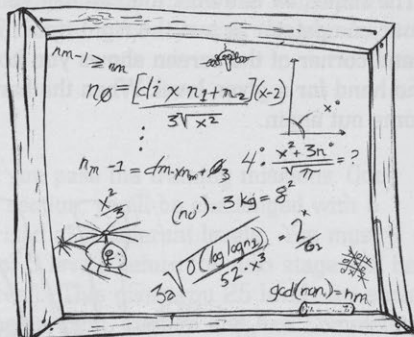 n_{m-1} ≥ n_m
n_0 = [di × n_1 + n_2](x-2) / 3√x²
x°
n_m - 1 = d_m × n_m +
4° · (x² + 3n°) / √π = ?
x²/3
(n_0¹) · 3 kg = 8²
3a √(0(log log n_2) / 52 · x³)
gcd(n_0 n_1) = n_m